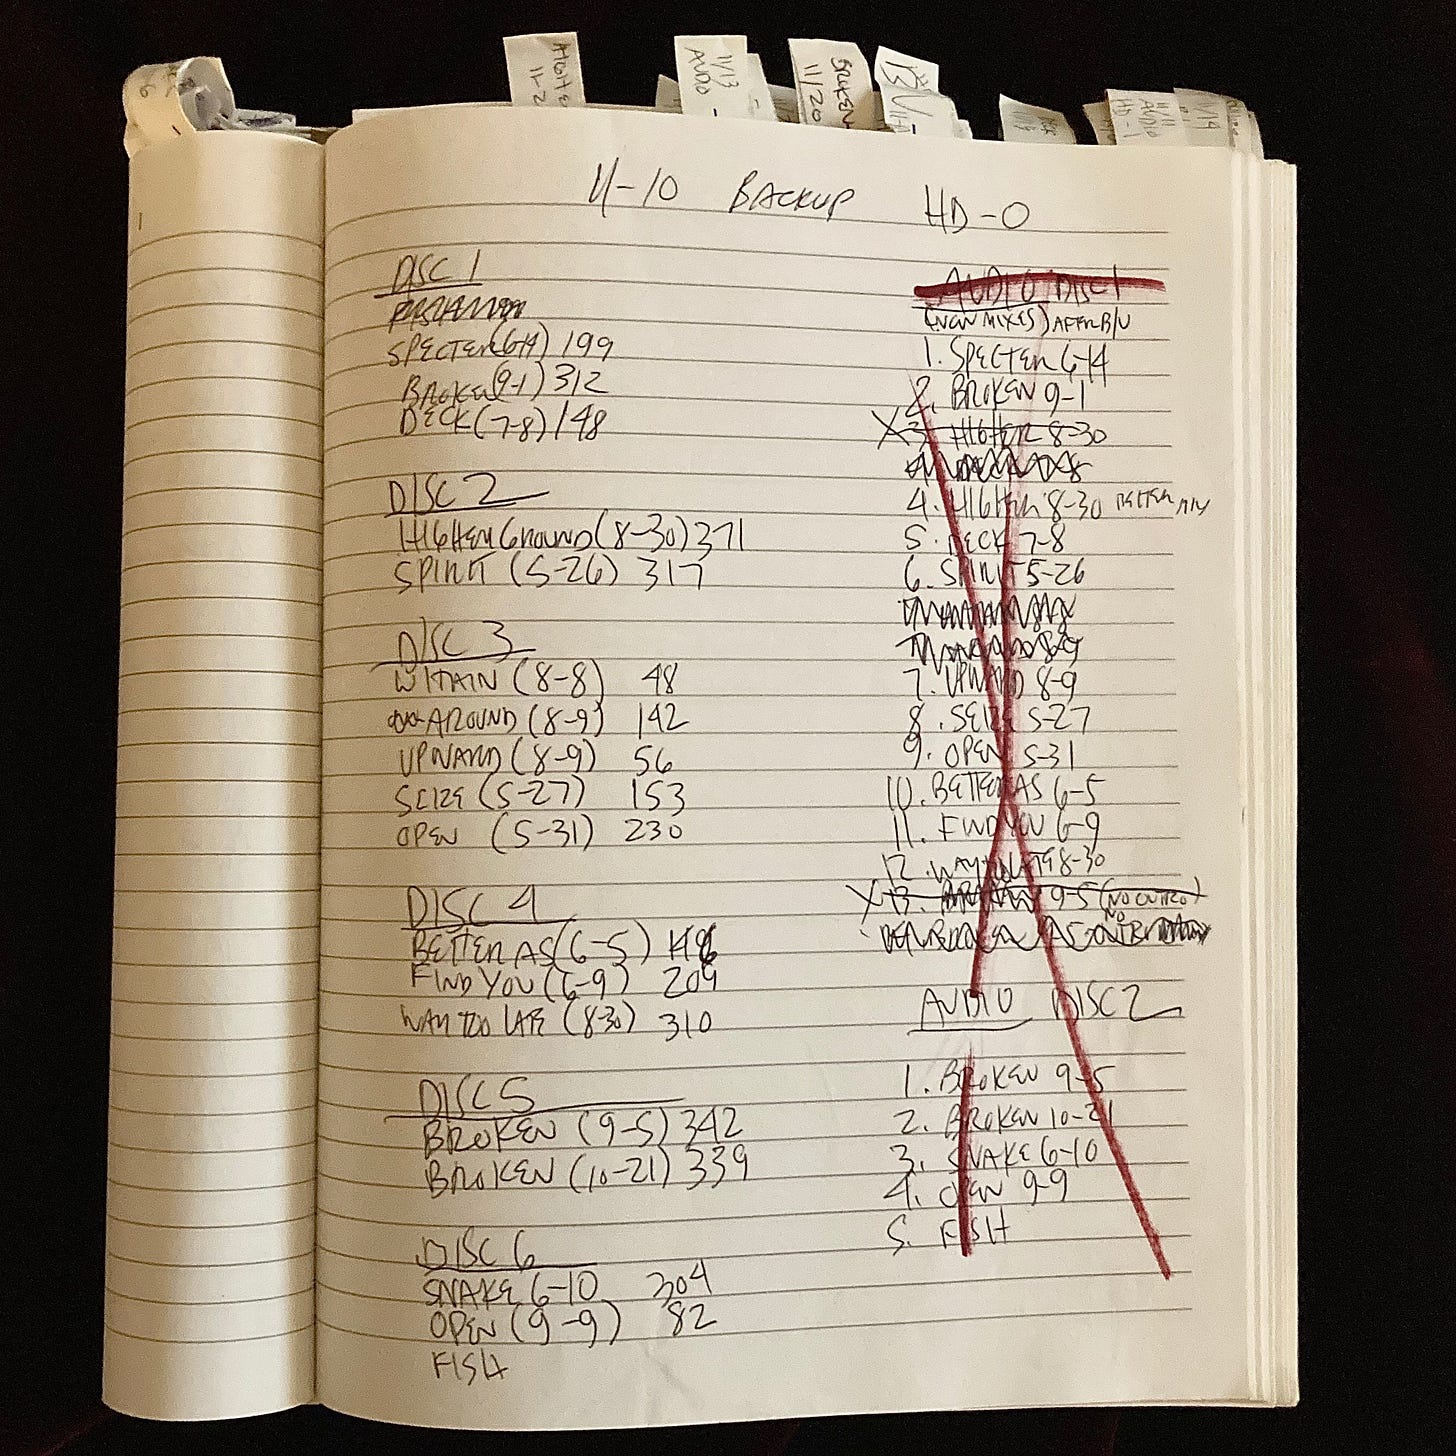 11/13
AUDIO
BROKEN
11/20
AUDIO
HD-1
11/19
4-10 BACKUP HD-0
DISC 1
SPECTER (6-14) 199
BROKEN (9-1) 312
DECK (7-8) 148
DISC 2
HIGHER GROUND (8-30) 371
SPIRIT (5-26) 317
DISC 3
WITHIN (8-8) 48
AROUND (8-9) 142
UPWARD (8-9) 56
SEIZE (5-27) 153
OPEN (5-31) 230
DISC 4
BETTER AS (6-5)
FIND YOU (6-9) 209
WAY TOO LATE (8-30) 310
DISC 5
BROKEN (9-5) 342
BROKEN (10-21) 339
DISC 6
SNAKE 6-10 304
OPEN (9-9) 82
FISH
AUDIO DISC 1
(NEW MIXES) AFTER B/U
1. SPECTER 6-14
2. BROKEN 9-1
X 3. HIGHER 8-30
4. HIGHER 8-30 BETTER MIX
5. DECK 7-8
6. SPIRIT 5-26
7. UPWARD 8-9
8. SEIZE 5-27
9. OPEN 5-31
10. BETTER AS 6-5
11. FIND YOU 6-9
12. WAY TOO LATE 8-30
X 13. BROKEN 9-5 (NO OUTRO)
AUDIO DISC 2
1. BROKEN 9-5
2. BROKEN 10-21
3. SNAKE 6-10
4. OPEN 9-9
5. FISH